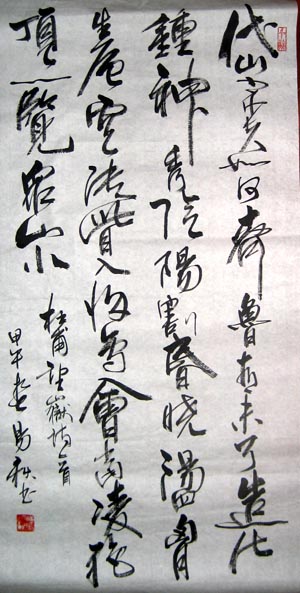 岱宗夫如何齊魯青未了造化
鍾神秀陰陽割昏曉盪胸
生層雲決眥入歸鳥會當凌絕
頂一覽眾山小
杜甫望嶽詩一首
甲午